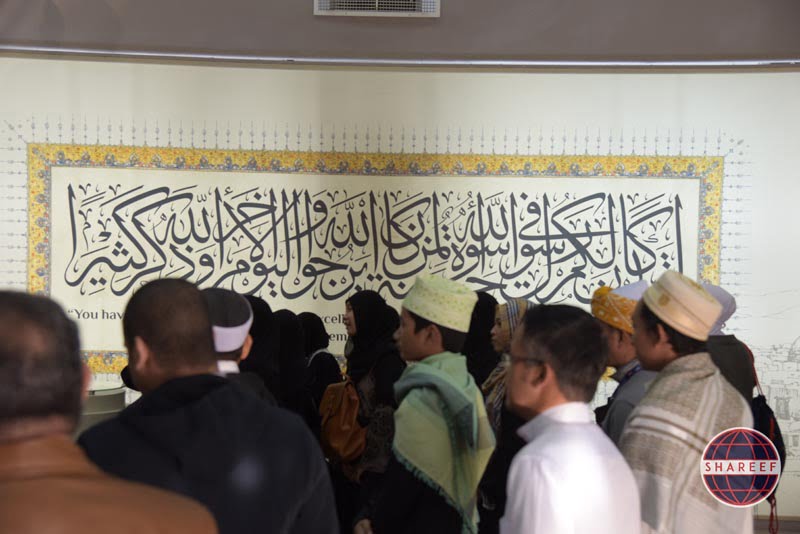 لقد كان لكم في رسول الله أسوة حسنة لمن كان يرجو الله واليوم الآخر وذكر الله كثيرا
"You have
SHAREEF